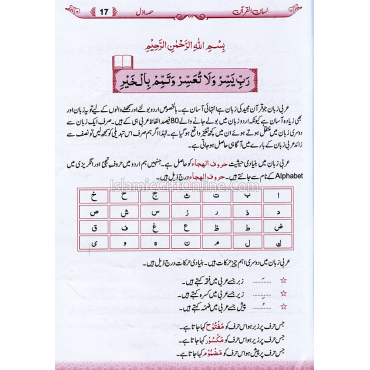 لسان القرآن 17 حصہ اول
بِسْمِ اللهِ الرَّحْمٰنِ الرَّحِيْمِ
رَبِّ يَسِّرْ وَلَا تُعَسِّرْ وَتَمِّمْ بِالْخَيْرِ
عربی زبان جو قرآن مجید کی زبان ہے انتہائی آسان ہے۔ بالخصوص اردو بولنے اور سمجھنے والوں کے لیے تو یہ زبان اور
بھی زیادہ آسان ہے کیونکہ اردو زبان میں بولے جانے والے 80 فیصد الفاظ عربی ہی کے ہیں۔ صرف ایک زبان سے
دوسری زبان میں منتقل ہوتے ہوئے ان میں کچھ تغیر واقع ہو گیا ہے۔ لہٰذا اگر ہم صرف اس تبدیلی کو سمجھ جائیں تو نصف سے
زائد عربی زبان کے بارے میں آگاہی حاصل ہو جاتی ہے۔
عربی زبان میں بنیادی حیثیت حروف الهجاء کو حاصل ہے۔ جنہیں ہم اردو میں حروف تہجی اور انگریزی میں
Alphabet کے نام سے جانتے ہیں۔ حروف الهجاء درج ذیل ہیں۔
ا ب ت ث ج ح خ
د ذ ر ز س ش ص
ض ط ظ ع غ ف ق
ك ل م ن و ه ی
عربی زبان میں دوسری اہم چیز حرکات ہیں۔ بنیادی حرکات درج ذیل ہیں۔
☆ زبر جسے عربی میں فتحہ کہتے ہیں۔
☆ زیر جسے عربی میں کسرہ کہتے ہیں۔
☆ پیش جسے عربی میں ضمہ کہتے ہیں۔
جس حرف پر زبر ہو اس حرف کو مَفْتُوْح کہا جاتا ہے۔
جس حرف پر زیر ہو اس حرف کو مَكْسُوْر کہا جاتا ہے۔
جس حرف پر پیش ہو اس حرف کو مَضْمُوْم کہا جاتا ہے۔